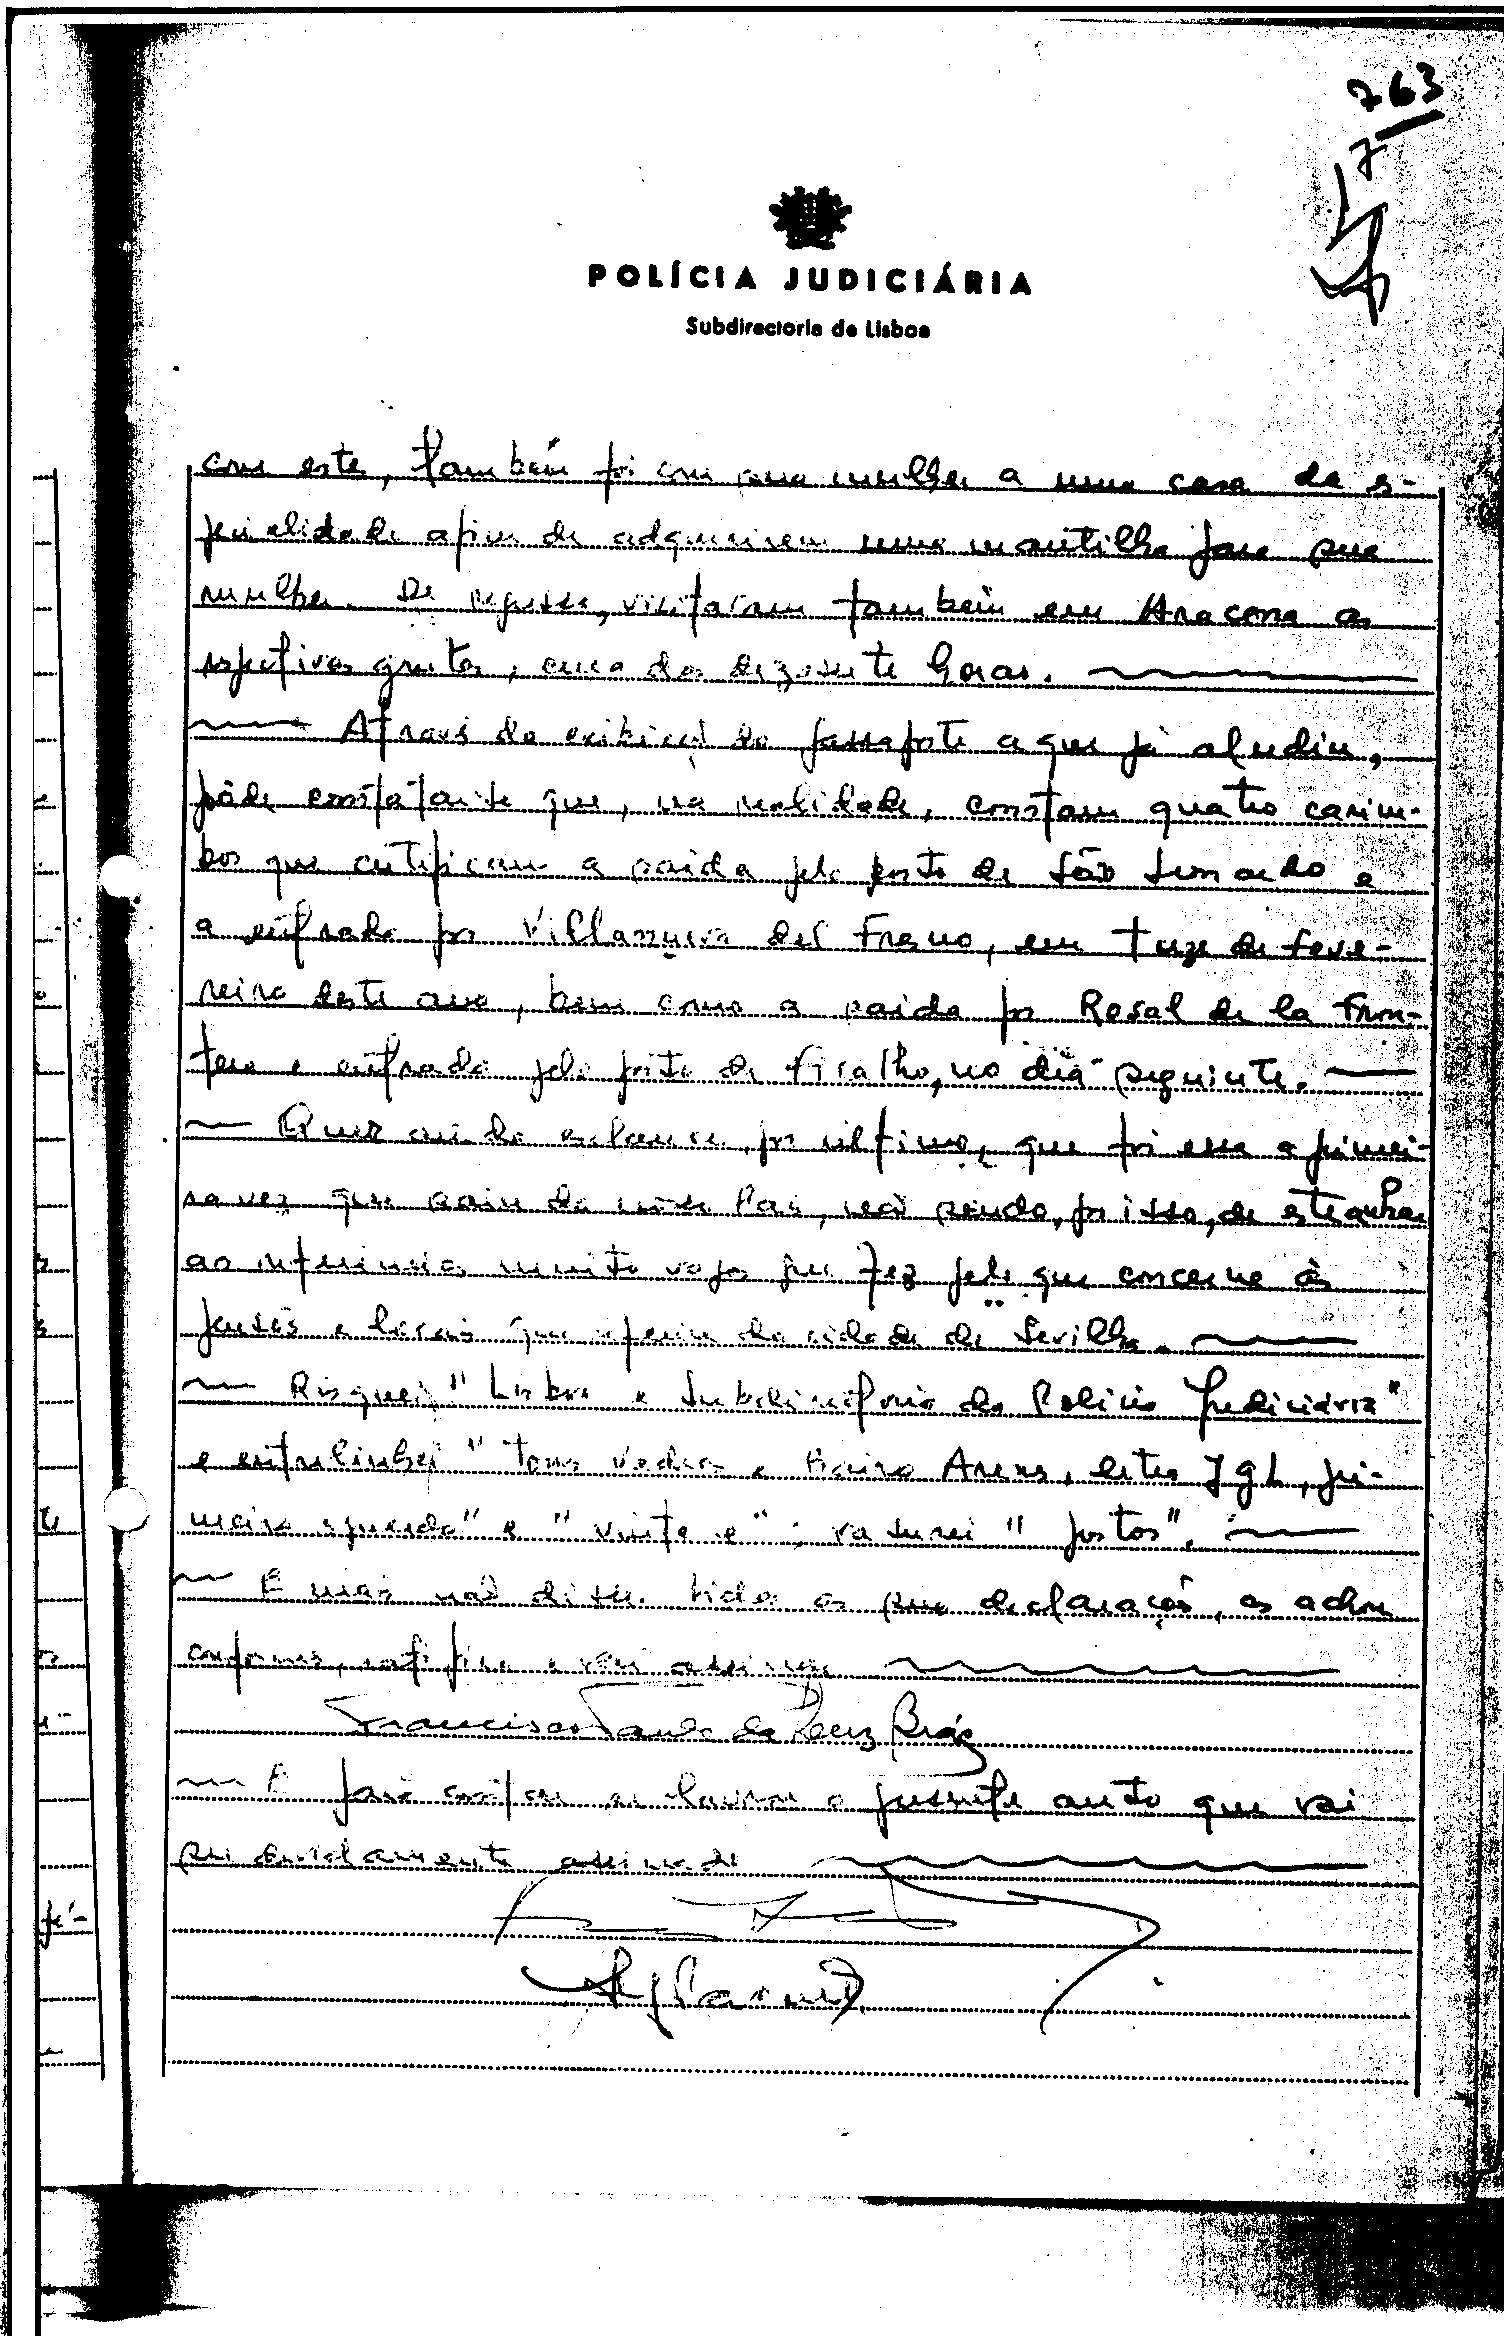 763
POLÍCIA JUDICIÁRIA
Subdirectoria de Lisboa
com este, também foi com sua mulher a uma casa da es-
pecialidade afim de adquirirem uma mantilha para sua
mulher. De regresso, visitaram também em Aracena as
respectivas grutas, cerca das dezassete horas.
Através da exibição do passaporte a que já aludiu,
pôde constatar-se que, na realidade, constam quatro carim-
bos que certificam a saída pelo posto de São Leonardo e
a entrada por Villanueva del Fresno, em treze de Feve-
reiro deste ano, bem como a saída por Rosal de la Fron-
tera e entrada pelo posto de Ficalho, no dia seguinte.
Quer ainda esclarecer, por último, que foi essa a primei-
ra vez que saiu do nosso País, não sendo, por isso, de estranhar
as referências muito vagas que fez pelo que concerne às
e locais que da cidade de Sevilha.
Risquei "Lisboa e Subdirectoria da Polícia Judiciária"
e entrelinhei "Torres Vedras e Bairro Arenes, letras J G L, pri-
meiro esquerdo" e "vinte e"; rasurei "postos".
E mais não disse. Lidas as suas declarações, as achou
conformes, ratifica e vai assinar
Francisco Paulo da Cruz Braz
E para constar se lavrou o presente auto que vai
ser devidamente assinado